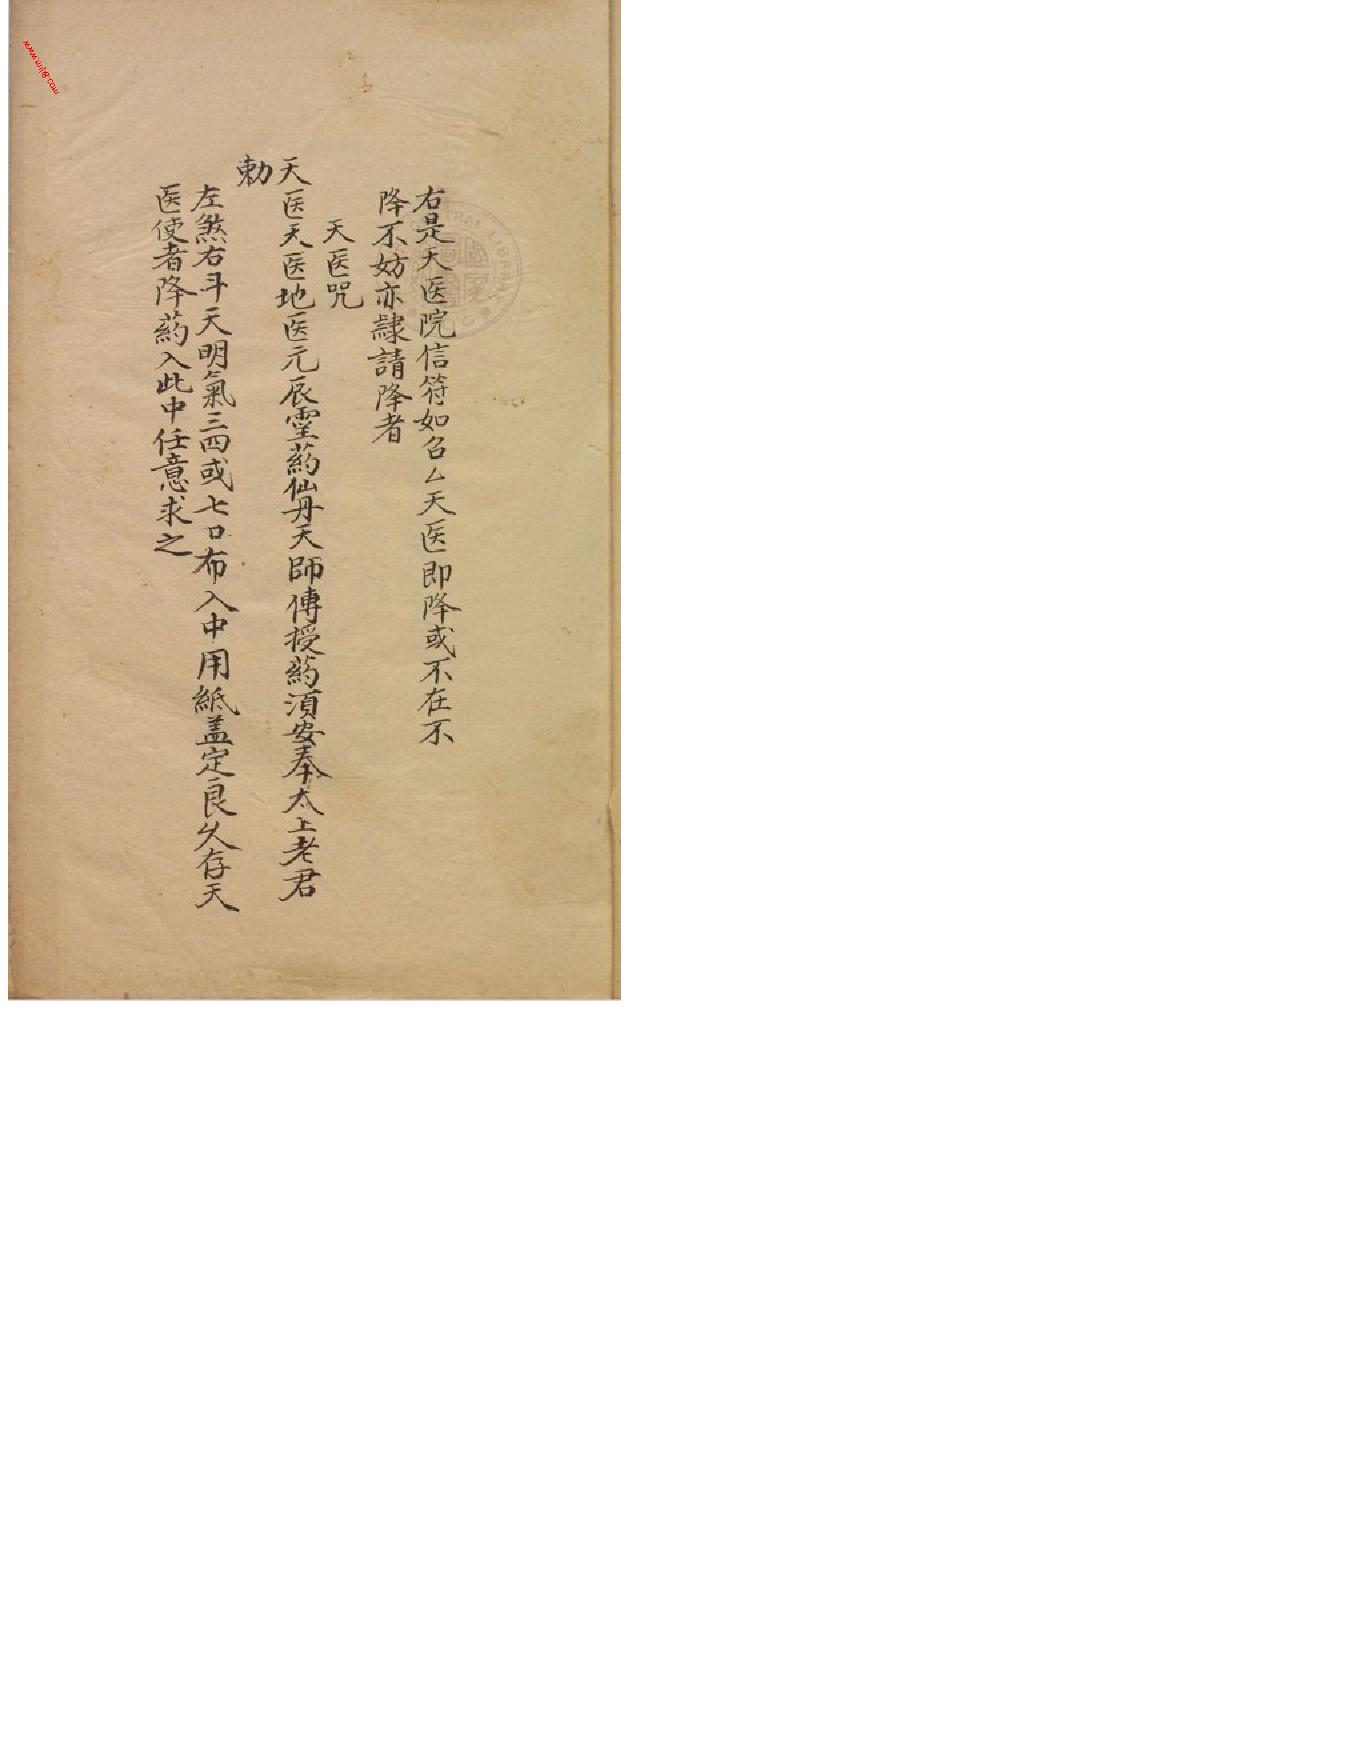 右是天医院信符如召厶天医即降或不在不
降不妨亦隷請降者
天医咒
天医天医地医元辰霊药仙丹天師傅授药湏安奉太上老君
勅
左煞右斗天明氣三四或七口布入中用紙盖定良久存天
医使者降药入此中任意求之